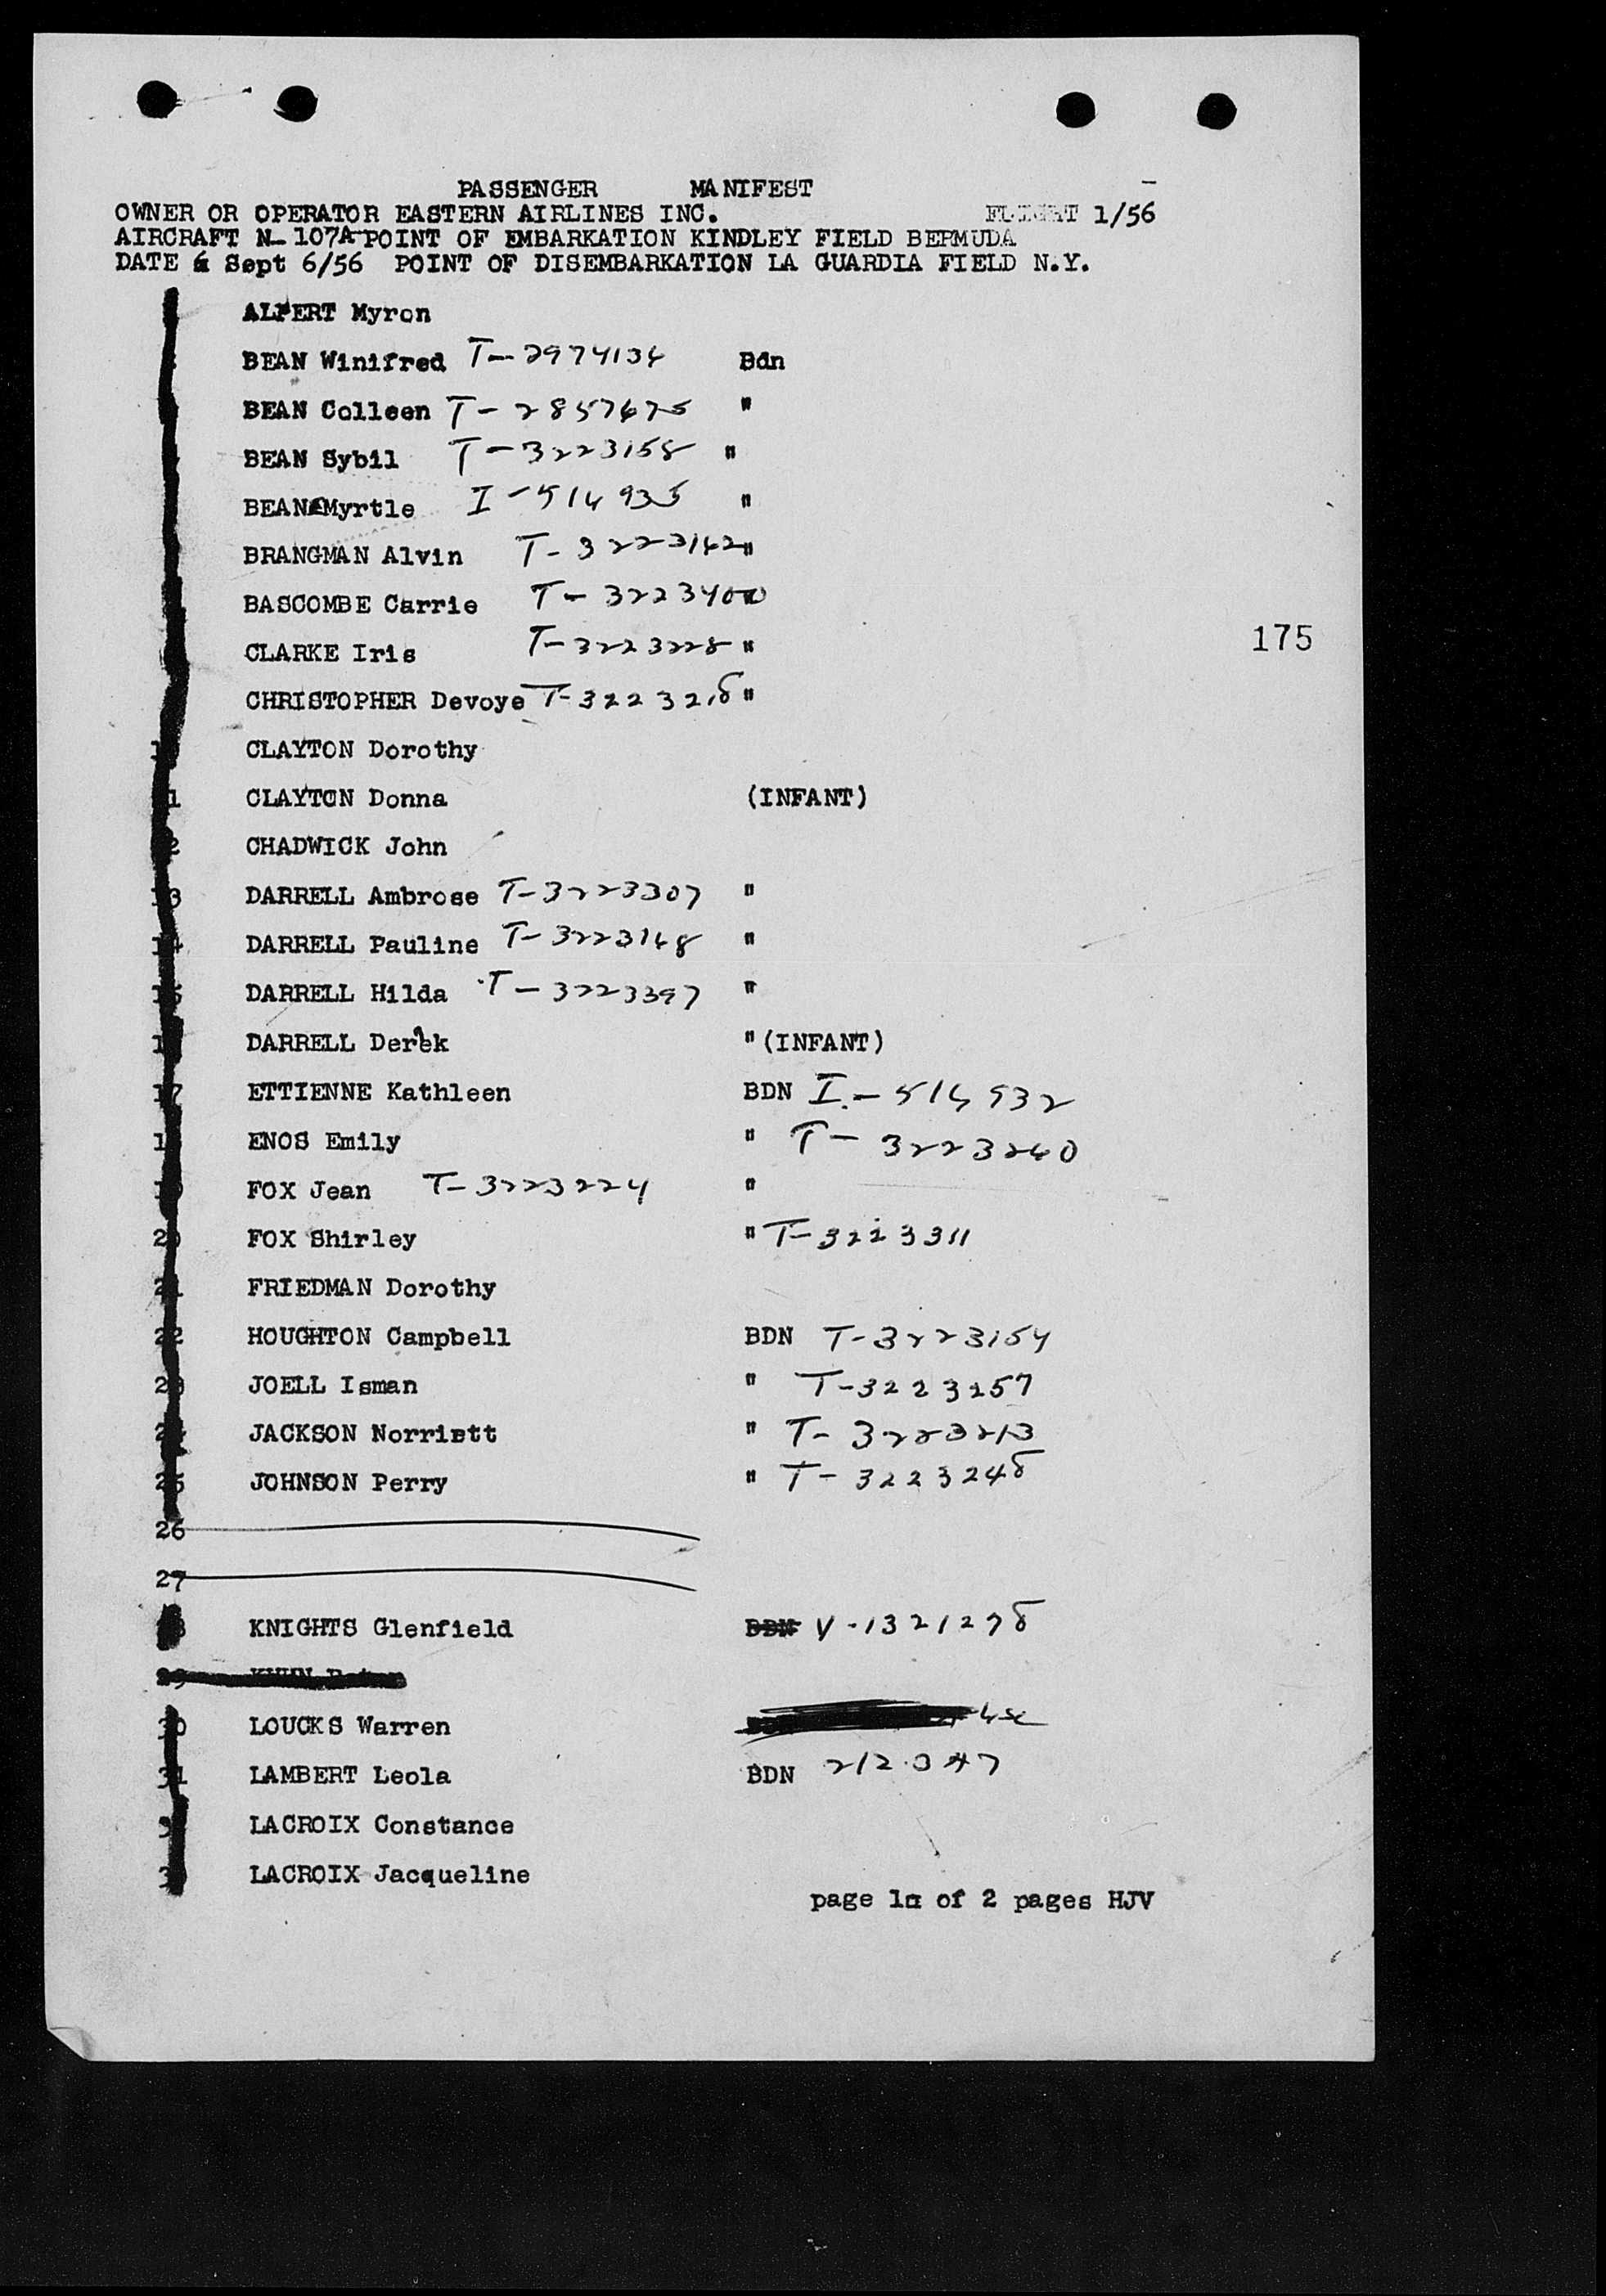 PASSENGER MANIFEST
OWNER OR OPERATOR EASTERN AIRLINES INC. FLIGHT 1/56
AIRCRAFT N-107A POINT OF EMBARKATION KINDLEY FIELD BERMUDA
DATE Sept 6/56 POINT OF DISEMBARKATION LA GUARDIA FIELD N.Y.
ALPERT Myron
BEAN Winifred T-2974134 Bdn
BEAN Colleen T-2857675 "
BEAN Sybil T-3223158 "
BEAN Myrtle I-514935 "
BRANGMAN Alvin T-3223142 "
BASCOMBE Carrie T-3223400
CLARKE Iris T-3223228 "
175
CHRISTOPHER Devoye T-3223218 "
CLAYTON Dorothy
11 CLAYTON Donna (INFANT)
12 CHADWICK John
13 DARRELL Ambrose T-3223307 "
14 DARRELL Pauline T-3223148 "
15 DARRELL Hilda T-3223397 "
DARRELL Derek " (INFANT)
17 ETTIENNE Kathleen BDN I-514932
ENOS Emily " T-3223240
19 FOX Jean T-3223224 "
20 FOX Shirley " T-3223311
21 FRIEDMAN Dorothy
22 HOUGHTON Campbell BDN T-3223154
23 JOELL Isman " T-3223257
24 JACKSON Norriett " T-3223213
25 JOHNSON Perry " T-3223248
26
27
28 KNIGHTS Glenfield BDN V-1321278
29
30 LOUCKS Warren
31 LAMBERT Leola BDN 212347
LACROIX Constance
LACROIX Jacqueline
page 1 of 2 pages HJV